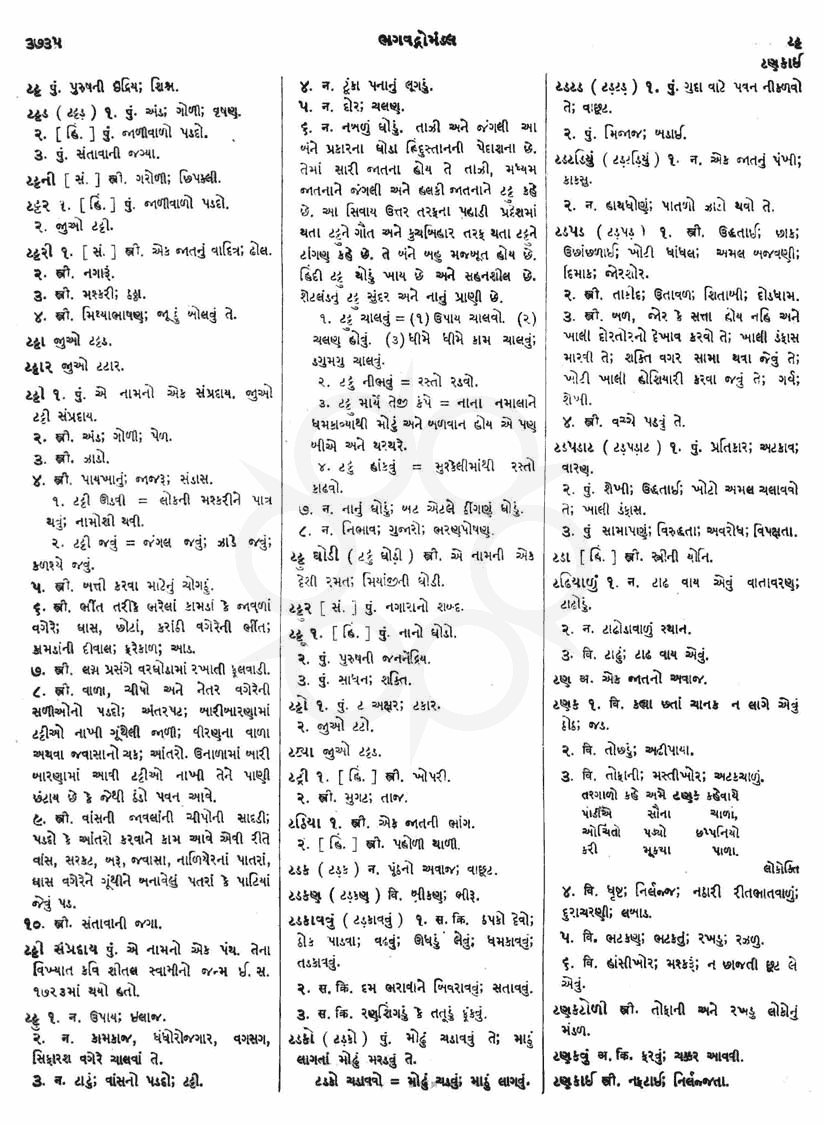 ૩૭૩૫
ભગવદ્ગોમંડલ
ટટ્ટ
ટણુકાઈ
ટટ્ટ પું. પુરુષની ઇંદ્રિય; શિશ્ન.
ટટ્ટડ ( ટટ્ટડ઼ ) ૧. પું. અંડ; ગોળી; વૃષણ.
૨. [ હિં. ] પું. જાળીવાળો પડદો.
૩. પું. સંતાવાની જગ્યા.
ટટ્ટની [ સં. ] સ્ત્રી. ગરોળી; છિપકલી.
ટટ્ટર ૧. [ હિં. ] પું. જાળીવાળો પડદો.
૨. જુઓ ટટ્ટી.
ટટ્ટરી ૧. [ સં. ] સ્ત્રી. એક જાતનું વાદિત્ર; ઢોલ.
૨. સ્ત્રી. નગારૂં.
૩. સ્ત્રી. મશ્કરી; ઠઠ્ઠા.
૪. સ્ત્રી. મિથ્યાભાષણ; જૂઠું બોલવું તે.
ટટ્ટા જુઓ ટટ્ટડ.
ટટ્ટાર જુઓ ટટાર.
ટટ્ટી ૧. પું. એ નામનો એક સંપ્રદાય. જુઓ
ટટ્ટી સંપ્રદાય.
૨. સ્ત્રી. અંડ; ગોળી; પેળ.
૩. સ્ત્રી. ઝાડો.
૪. સ્ત્રી. પાયખાનું; જાજરૂ; સંડાસ.
૧. ટટ્ટી ઊડવી = લોકની મશ્કરીને પાત્ર
થવું; નામોશી થવી.
૨. ટટ્ટી જવું = જંગલ જવું; ઝાડે જવું;
કળશ્યે જવું.
૫. સ્ત્રી. બત્તી કરવા માટેનું ચોગઠું.
૬. સ્ત્રી. ભીંત તરીકે ભરેલાં કામડાં કે જાવળાં
વગેરે; ઘાસ, છોટાં, કરાંઠી વગેરેની ભીંત;
કામડાંની દીવાલ; ફરેકાળ; આડ.
૭. સ્ત્રી. લગ્ન પ્રસંગે વરઘોડામાં રખાતી ફૂલવાડી.
૮. સ્ત્રી. વાળા, ચીપો અને નેતર વગેરેની
સળીઓનો પડદો; અંતરપટ; બારીબારણામાં
ટટ્ટીઓ નાખી ગૂંથેલી જાળી; વીરણુના વાળા
અથવા જવાસાનો ચક; આંતરો. ઉનાળામાં બારી
બારણામાં આવી ટટ્ટીઓ નાખી તેને પાણી
છંટાય છે કે જેથી ઠંડો પવન આવે.
૯. સ્ત્રી. વાંસની જાવલાંની ચીપોની સાદડી;
પડદો કે આંતરો કરવાને કામ આવે એવી રીતે
વાંસ, સરકટ, બરૂ, જવાસા, નાળિયેરનાં પાતરાં,
ઘાસ વગેરેને ગૂંથીને બનાવેલું પતરાં કે પાટિયાં
જેવું પડ.
૧૦. સ્ત્રી. સંતાવાની જગા.
ટટ્ટી સંપ્રદાય પું. એ નામનો એક પંથ. તેના
વિખ્યાત કવિ શીતલ સ્વામીનો જન્મ ઈ. સ.
૧૭૨૩માં થયો હતો.
ટટ્ટુ ૧. ન. ઉપાય; ઇલાજ.
૨. ન. કામકાજ, ધંધોરોજગાર, વગસગ,
સિફારશ વગેરે ચાલવાં તે.
૩. ન. ટાટું; વાંસનો પડદો; ટટ્ટી.
૪. ન. ટૂંકા પનાનું લૂગડું.
૫. ન. દોર; ચલણ.
૬. ન. નબળું ઘોડું. તાઝી અને જંગલી આ
બંને પ્રકારના ઘોડા હિંદુસ્તાનની પેદાશના છે.
તેમાં સારી જાતના હોય તે તાઝી, મધ્યમ
જાતનાને જંગલી અને હલકી જાતનાને ટટ્ટુ કહે
છે. આ સિવાય ઉત્તર તરફના પહાડી પ્રદેશમાં
થતા ટટ્ટુને ગૌત અને કુચબિહાર તરફ થતા ટટ્ટુને
ટાંગણુ કહે છે. તે બંને બહુ મજબૂત હોય છે.
હિંદી ટટ્ટુ થોડું ખાય છે અને સહનશીલ છે.
શેટલંડનું ટટ્ટુ સુંદર અને નાનું પ્રાણી છે.
૧. ટટ્ટુ ચાલવું = (૧) ઉપાય ચાલવો. (૨)
ચલણ હોવું. (૩) ધીમે ધીમે કામ ચાલવું;
ડગુમગુ ચાલવું.
૨. ટટ્ટુ નીભવું = રસ્તો રડવો.
૩. ટટ્ટુ માર્યે તેજી કંપે = નાના નમાલાને
ધમકાવ્યાથી મોટું અને બળવાન હોય એ પણ
બીએ અને થરથરે.
૪. ટટ્ટુ હાંકવું = મુશ્કેલીમાંથી રસ્તો
કાઢવો.
૭. ન. નાનું ઘોડું; બટ એટલે ઠીંગણું ઘોડું.
૮. ન. નિભાવ; ગુજારો; ભરણપોષણ.
ટટ્ટુ ઘોડી ( ટટ્ટુ ઘોડ઼ી ) સ્ત્રી. એ નામની એક
દેશી રમત; મિયાંજીની ઘોડી.
ટટ્ટુર [ સં. ] પું. નગારાનો શબ્દ.
ટટ્ટૂ ૧. [ હિં. ] પું. નાનો ઘોડો.
૨. પું. પુરુષની જનનેંદ્રિય.
૩. પું. સાધન; શક્તિ.
ટટ્ટો ૧. પું. ટ અક્ષર; ટકાર.
૨. જુઓ ટટો.
ટટ્યા જુઓ ટટ્ટડ.
ટટ્રી ૧. [ હિં. ] સ્ત્રી. ખોપરી.
૨. સ્ત્રી. મુગટ; તાજ.
ટઠિયા ૧. સ્ત્રી. એક જાતની ભાંગ.
૨. [ હિં. ] સ્ત્રી. પહોળી થાળી.
ટડક ( ટડ઼ક ) ન. પૂંઠનો અવાજ; વાછૂટ.
ટડકણ ( ટડ઼કણ ) વિ. બીકણ; ભીરૂ.
ટડકાવવું ( ટડ઼કાવવું ) ૧. સ. ક્રિ. ઠપકો દેવો;
ઠોક પાડવા; વઢવું; ઊધડું લેવું; ધમકાવવું;
તડકાવવું.
૨. સ. ક્રિ. દમ ભરાવીને બિવરાવવું; સતાવવું.
૩. સ. ક્રિ. રણશિંગડું કે તતૂડું ફૂંકવું.
ટડકો ( ટડ઼કો ) પું. મોઢું ચડાવવું તે; માઠું
લાગતાં મોઢું મરડવું તે.
ટડકો ચડાવવો = મોઢું ચડવું; માઠું લાગવું.
ટડટડ ( ટડ઼ટડ઼ ) ૧. પું. ગુદા વાટે પવન નીકળવો
તે; વાછૂટ.
૨. પું. મિજાજ; બડાઈ.
ટડટડિયું ( ટડ઼ટડ઼િયું ) ૧. ન. એક જાતનું પંખી;
કાકસુ.
૨. ન. હાથધોણું; પાતળો ઝાડો થવો તે.
ટડપડ ( ટડ઼પડ઼ ) ૧. સ્ત્રી. ઉદ્ધતાઈ; છાક;
ઉછાંછળાઈ; ખોટી ધાંધલ; અમલ બજવણી;
દિમાક; જોરશોર.
૨. સ્ત્રી. તાકીદ; ઉતાવળ; શિતાબી; દોડધામ.
૩. સ્ત્રી. બળ, જોર કે સત્તા હોય નહિ અને
ખાલી દોરદોરનો દેખાવ કરવો તે; ખાલી ડંફાસ
મારવી તે; શક્તિ વગર સામા થવા જેવું તે;
ખોટી ખાલી હોશિયારી કરવા જવું તે; ગર્વ;
શેખી.
૪. સ્ત્રી. વચ્ચે પડવું તે.
ટડપડાટ ( ટડ઼પડ઼ાટ ) ૧. પું. પ્રતિકાર; અટકાવ;
વારણ.
૨. પું. શેખી; ઉદ્ધતાઈ; ખોટો અમલ ચલાવવો
તે; ખાલી ડંફાસ.
૩. પું સામાપણું; વિરુદ્ધતા; અવરોધ; વિપક્ષતા.
ટડા [ હિં. ] સ્ત્રી. સ્ત્રીની યોનિ.
ટઢિયાળું ૧. ન. ટાઢ વાય એવું વાતાવરણ;
ટાઢોડું.
૨. ન. ટાઢોડાવાળું સ્થાન.
૩. વિ. ટાઢું; ટાઢ વાય એવું.
ટણ અ. એક જાતનો અવાજ.
ટણક ૧. વિ. કહ્યા છતાં ચાનક ન લાગે એવું
ઠોઠ; જડ.
૨. વિ. તોછડું; અઢીપાયા.
૩. વિ. તોફાની; મસ્તીખોર; અટકચાળું.
તરગાળો કહે અમે ટણક કહેવાયે
પાંડીએ સૌના ચાળા,
ઓચિંતો પડ્યો છપ્પનિયો
કરી મૂકયા પાળા.
લોકોક્તિ
૪. વિ. ધૃષ્ટ; નિર્લજ્જ; નઠારી રીતભાતવાળું;
દુરાચરણી; લબાડ.
૫. વિ. ભટકણ; ભટકતું; રખડુ; રઝળુ.
૬. વિ. હાંસીખોર; મશ્કરૂં; ન છાજતી છૂટ લે
એવું.
ટણકટોળી સ્ત્રી. તોફાની અને રખડુ લોકોનું
મંડળ.
ટણકવું અ. ક્રિ. ફરવું; ચક્કર આવવી.
ટણકાઈ સ્ત્રી. નફટાઈ; નિર્લજ્જતા.